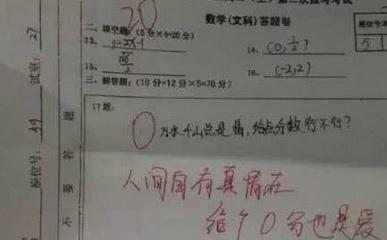 数学(文科)答题卷
20
二、填空题:(5分×4=20分)
13、y=2x-1
14、(0,½)
15、
16、(-2,2)
三、解答题:(10分+12分×5=70分)
17题:
0 万水千山总是情,给点分数行不行?
人间自有真情在
给个0分也是爱
试室:27
座位号:
不要答题
座位号
51